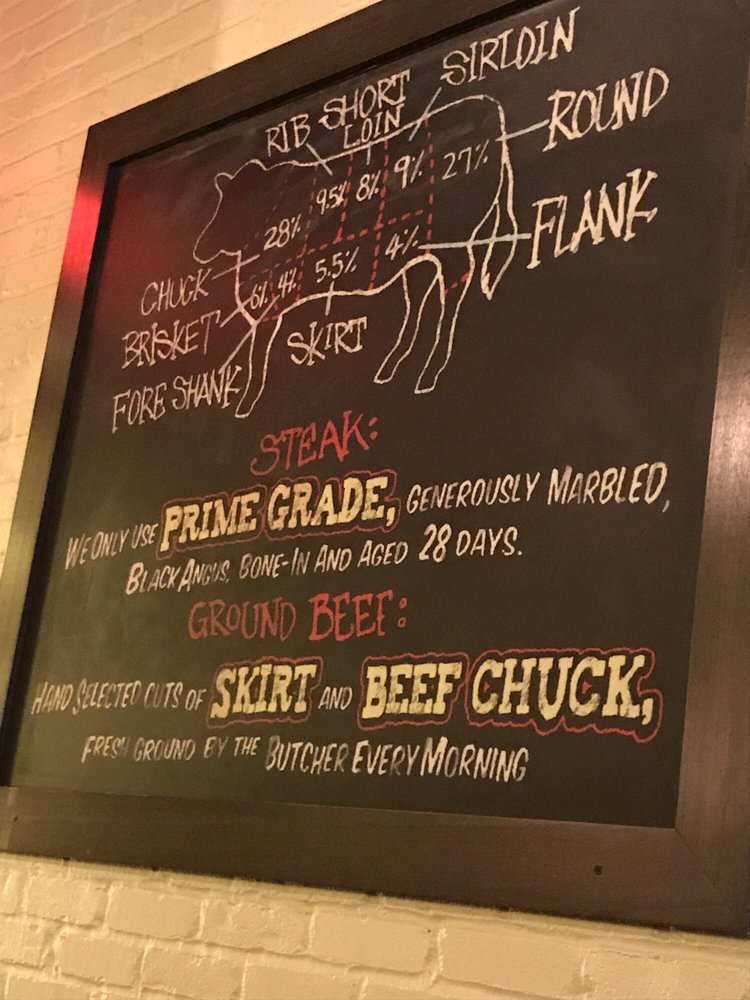 SIRLOIN
RIB SHORT LOIN
ROUND
9.5% 8% 9% 27%
28%
FLANK
4%
5.5%
6% 4%
CHUCK
BRISKET
SKIRT
FORE SHANK
STEAK:
WE ONLY USE PRIME GRADE, GENEROUSLY MARBLED,
BLACK ANGUS, BONE-IN AND AGED 28 DAYS.
GROUND BEEF:
HAND SELECTED CUTS OF SKIRT AND BEEF CHUCK,
FRESH GROUND BY THE BUTCHER EVERY MORNING